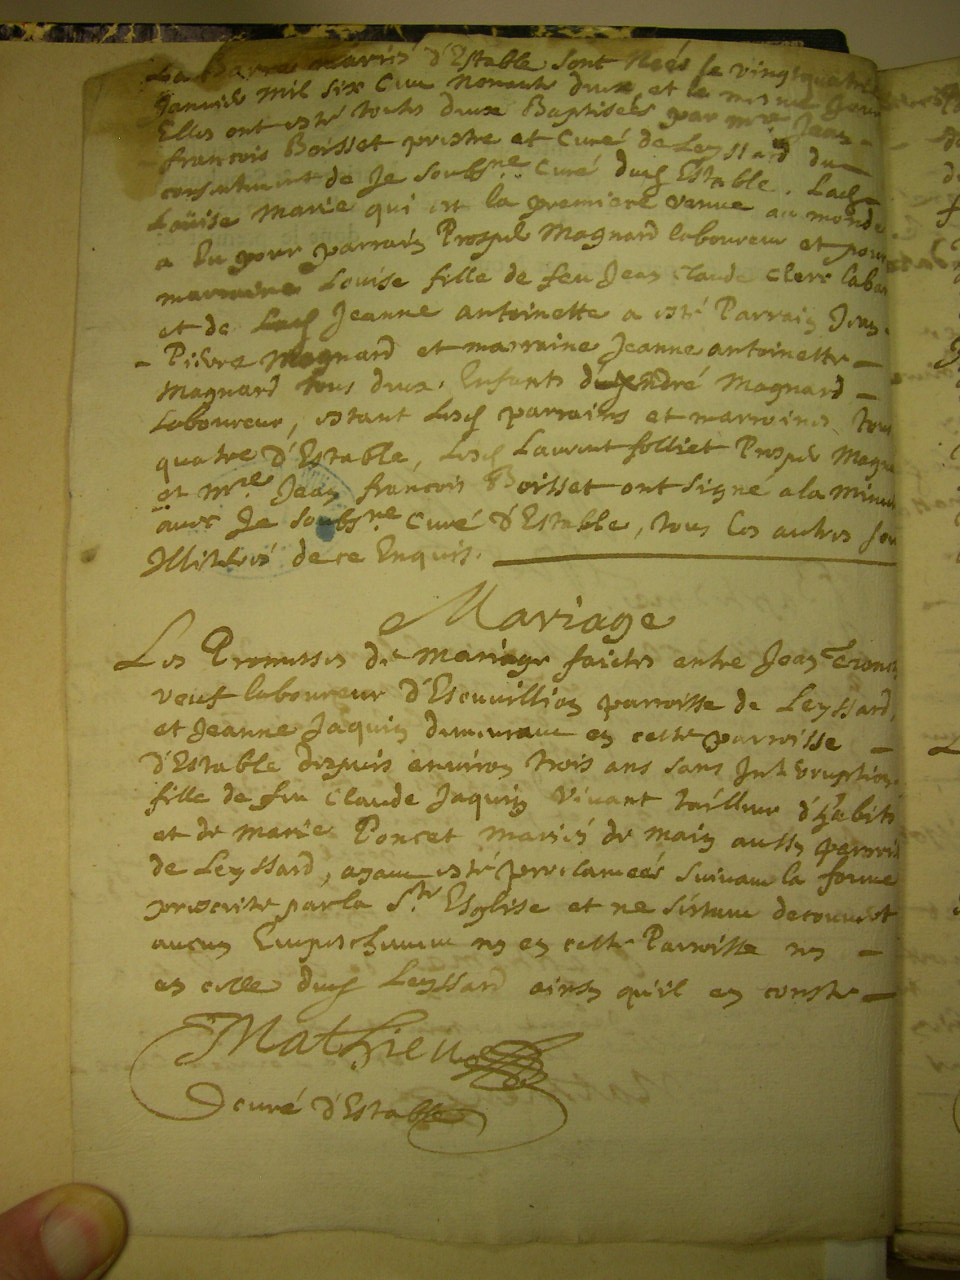 La Barre mariés d'Estable sont Néés le vingtquatri
Janvier mil six Cens Nonante deux et le mesme Jour
Elles ont esté toutes deux Baptisées par mre Jean -
françois Boisset prestre et Curé de Leyssard du
consentement de Je soubsne Curé dud Estable. Lad
Loüise Marie qui est la premiere venue au monde
a Eu pour parrain Prosper Magnard laboureur et pour
marraine Louise fille de feu Jean Claude Clerc labou
et de Lad Jeanne antoinette a esté Parrain Jean
- Pierre Magnard et marraine Jeanne antoinette -
Magnard tous deux Enfants d'andré Magnard -
Laboureur, estant Lesd parrains et marraines tous
quatre d'Estable, Lesd Laurent folliet Prosper Magna
et mre Jean françois Boisset ont signé a la minut
avec Je soubsne Curé d'Estable, tous les autres son
Illitérés de ce Enquis.
Mariage
Les Promesses de mariage faictes entre Jean
veuf laboureur d'Escuvillion parroisse de Leyssard,
et Jeanne Jaquin demeurant en cette parroisse -
d'Estable depuis environ trois ans sans Interruption,
fille de feu Claude Jaquin Vivant tailleur d'habits
et de marie Poncet mariés de main aussy parroi
de Leyssard, ayant esté proclameés suivant la forme
prescrite par la Ste Esglise et ne s'estant decouvert
aucun Empeschement ny en cette Parroisse ny -
en celle dud Leyssard ainsy qu'il en conste -
Mathieu
curé d'Estable